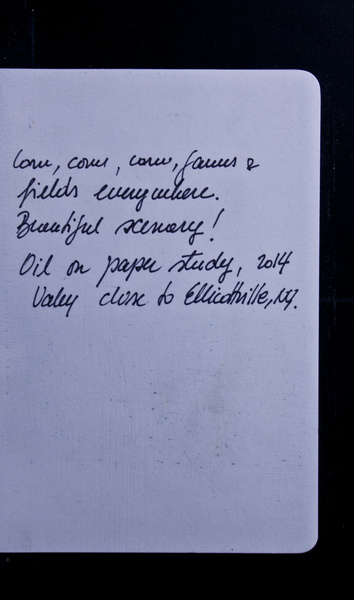 Corn, corn, corn, farms &
fields everywhere.
Beautiful scenery!
Oil on paper study, 2014
Valey close to Ellicottville, NY.